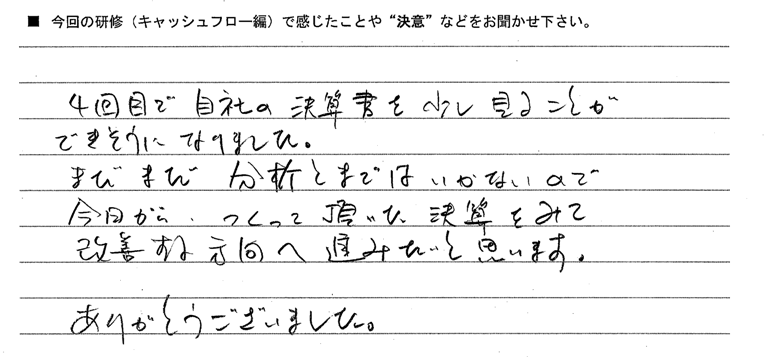 ■ 今回の研修（キャッシュフロー編）で感じたことや“決意”などをお聞かせ下さい。
4回目で 自社の 決算書を 少し 見ることが
できそうに なりました。
まだ まだ 分析とまでは いかないので
今日から、つくって 頂いた 決算をみて
改善する 方向へ 進みたいと 思います。
ありがとうございました。